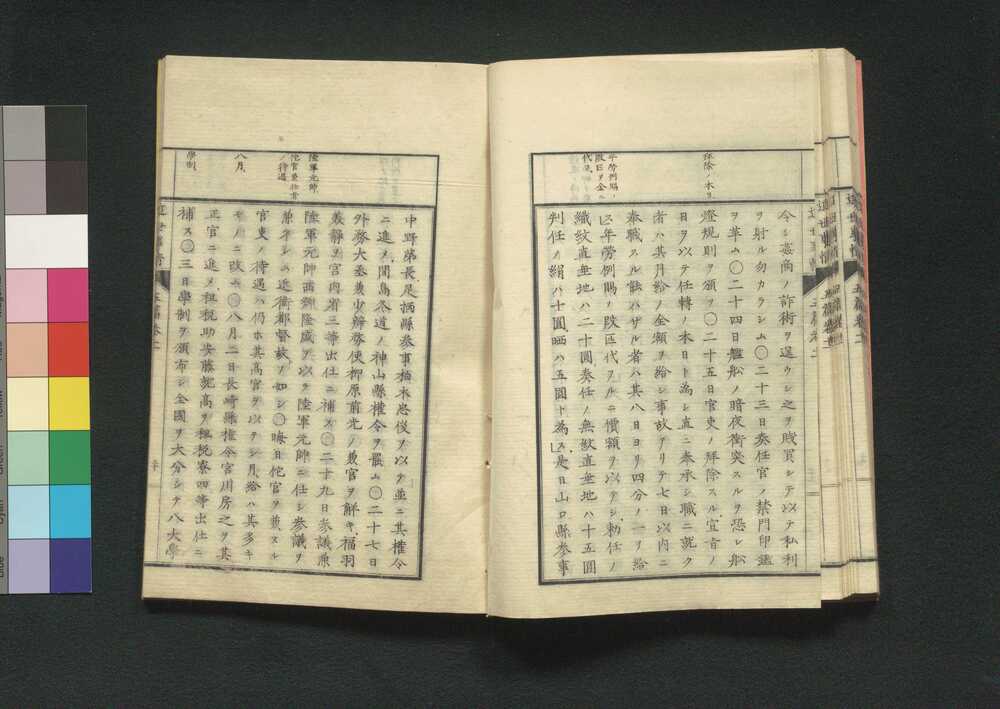 今シ姦商ノ詐術ヲ逞ウシ之ヲ賎買シテ以テ私利
ヲ射ル勿カラシム〇二十三日奏任官ノ禁門印鑑
ヲ革ム〇二十四日艦舩ノ暗夜衝突スルヲ恐レ舩
燈規則ヲ頒ツ〇二十五日官吏ノ拜除スル宣旨ノ
日ヲ以テ任轉ノ本日ト為シ直ニ奉承シ職ニ就ク
者ハ其月給ノ全額ヲ給シ事故アリテ七日以内ニ
奉職スル能ハザル者ハ其八日目ヨリ四分ノ一ヲ給
ス年勞例賜ノ段匹代フルニ價額ヲ以テシ勅任ノ
織紋直垂地ハ二十圓奏任ノ無紋直垂地ハ十五圓
判任ノ絹ハ十圓晒ハ五圓ト為ス是日山口縣參事
中野梧一長尾栖縣參事柏木忠俊ヲ以テ並ニ其權令
ニ進メ間島冬道ノ神山縣權令ヲ罷ム〇二十七日
外務大丞兼少辨務使柳原前光ノ兼官ヲ解キ福羽
美靜ヲ宮内省三等出仕ニ補ス〇二十九日參議兼
陸軍元帥西鄉隆盛ヲ以テ陸軍元帥ニ任シ參議ヲ
兼子シム近衛都督故ノ如シ〇晦日他官ヲ兼スル
官吏ノ待遇ハ仍ホ其高官ヲ以テシ月給ハ其多キ
モノニ改ム〇八月二日長崎縣權令宮川房之ヲ其
正官ニ進メ租税助安藤就高ヲ租税寮四等出仕ニ
補ス〇三日學制ヲ頒布シ全國ヲ大分シテ八大學
拜除ノ本日
年勞例賜ノ
段匹ヲ金ニ
代フ
陸軍元帥
他官兼任者
ノ待遇
八月
學制